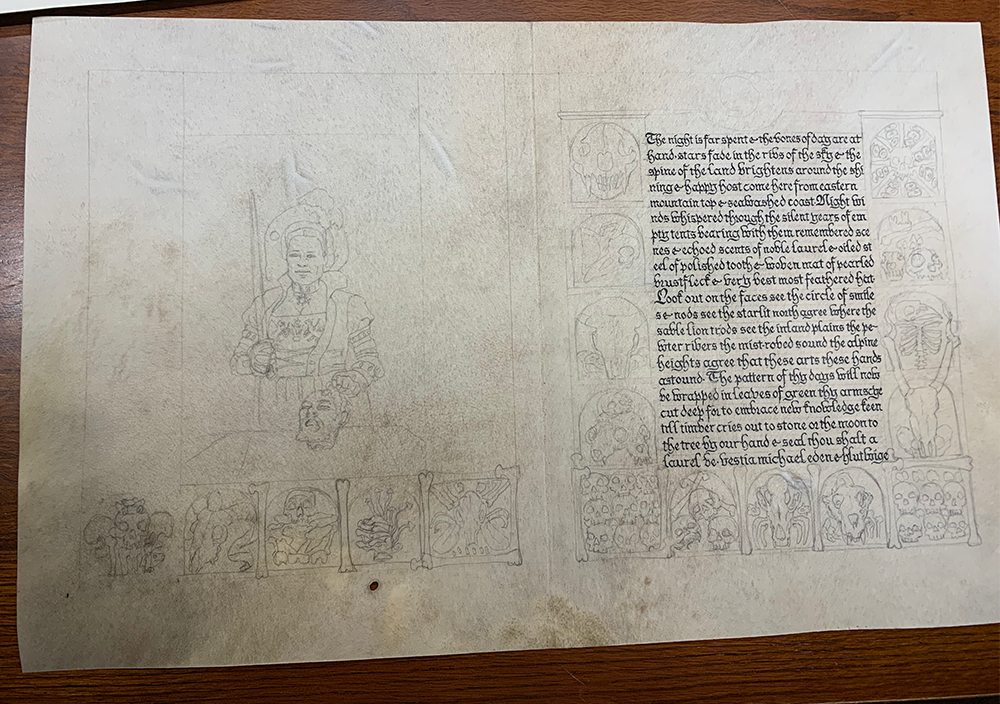 The night is far spent & the bones of day are at
hand. stars fade in the ribs of the sky & the
spine of the land brightens around the shi
ning & happy host come here from eastern
mountain top & seawashed coast Night wi
nds whispered through the silent years of em
pty tents bearing with them remembered sce
nes & echoed scents of noble laurel & oiled st
eel of polished tooth & woven mat of pearled
brustfleck & very best most feathered hat
Look out on the faces see the circle of smile
s & nods see the starlit north agree where the
sable lion trods see the inland plains the pe-
wter rivers the mist-robed sound the alpine
heights agree that these arts these hands
astound. The pattern of thy days will now
be wrapped in leaves of green thy armscye
cut deep for to embrace new knowledge keen
till timber cries out to stone or the moon to
the tree by our hand & seal thou shalt a
laurel be. vestia michael eden &